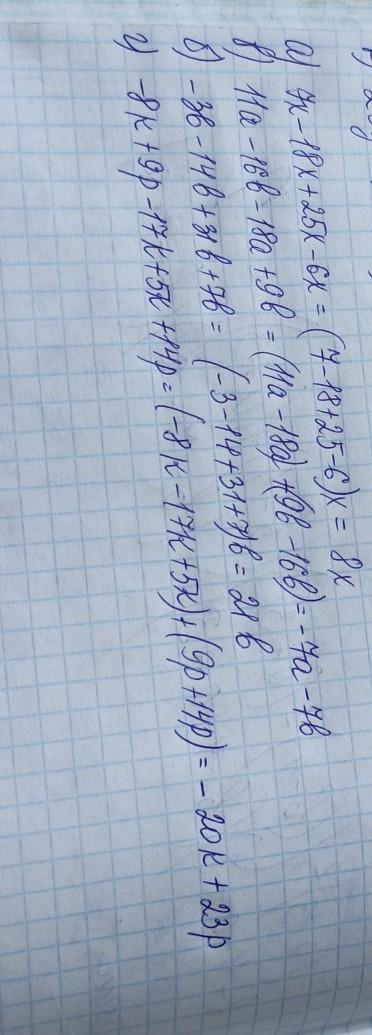 а) 7x - 18x + 25x - 6x = (7 - 18 + 25 - 6)x = 8x
в) 11a - 16b = 18a + 9b = (11a - 18a) + (9b - 16b) = -7a - 7b
б) -3b - 14b + 31b + 7b = (-3 - 14 + 31 + 7)b = 21b
г) -8k + 9p - 17k + 5k + 14p = (-8k - 17k + 5k) + (9p + 14p) = - 20k + 23p